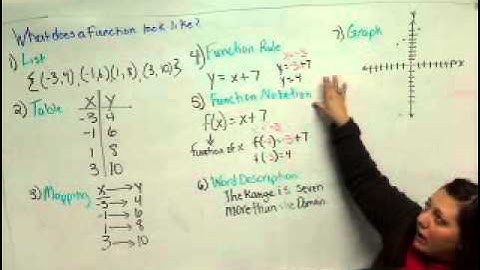 What does a Function look like?
1) List
{(-3,4), (-1,6)(1,8), (3,10)}
2) Table
X Y
-3 4
-1 6
1 8
3 10
3) Mapping
X → Y
-3 → 4
-1 → 6
1 → 8
3 → 10
4) Function Rule
y = x+7
x=-3
y=-3+7
y=4
5) Function Notation
f(x) = x+7
function of x
x=-3
f(-3)=-3+7
f(-3)=4
6) Word Description
The Range is seven
more than the Domain.
7) Graph
X